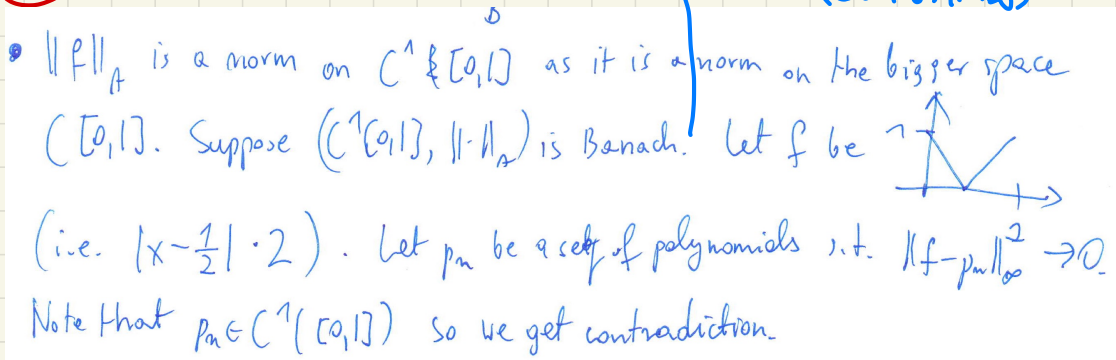 • ||f||_A is a norm on C^1 [0,1] as it is a norm on the bigger space
C[0,1]. Suppose (C^1[0,1], ||·||_A) is Banach. Let f be 1
(i.e. |x-1/2|·2). Let p_n be a seq of polynomials s.t. ||f-p_n||_∞^2 →0.
Note that p_n ∈ C^1([0,1]) so we get contradiction.